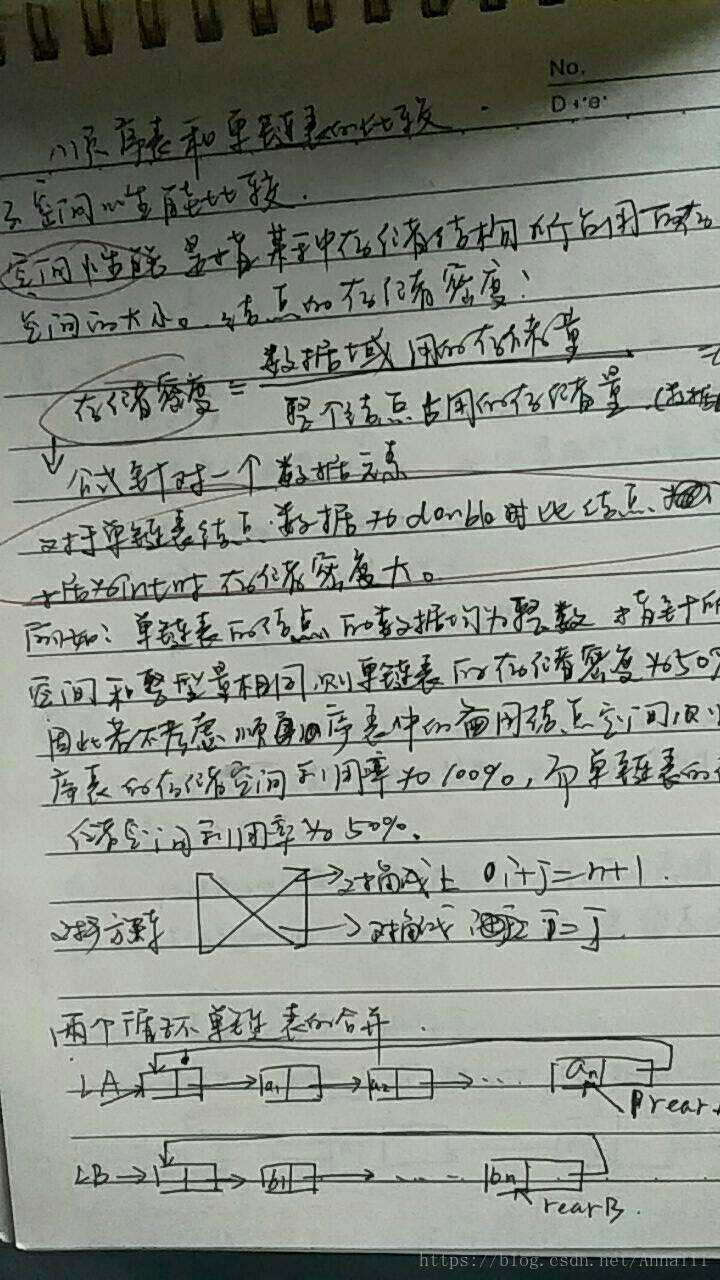 No.
Date
顺序表和单链表的比较.
空间性能比较.
空间性能是指某中存储结构所占用的存
空间的大小。结点的存储密度:
存储密度 = 数据域用的存储量
整个结点占用的存储量 (数据
公式针对一个数据元素
对于单链表结点.数据为double时比结点
数据为int时存储密度大。
例如: 单链表的结点的数据均为整数 指针所
空间和整型量相同,则单链表的存储密度为50%
因此若不考虑顺序表中的备用结点空间,则
序表的存储空间利用率为100%,而单链表的
储空间利用率为50%.
对角线上 i+j=n+1.
对称方阵
对角线 i=j.
两个循环单链表的合并.
LA a₁ a₂ ... aₙ
rear
LB b₁ ... bₙ
rearB.
https://blog.csdn.net/Annalll